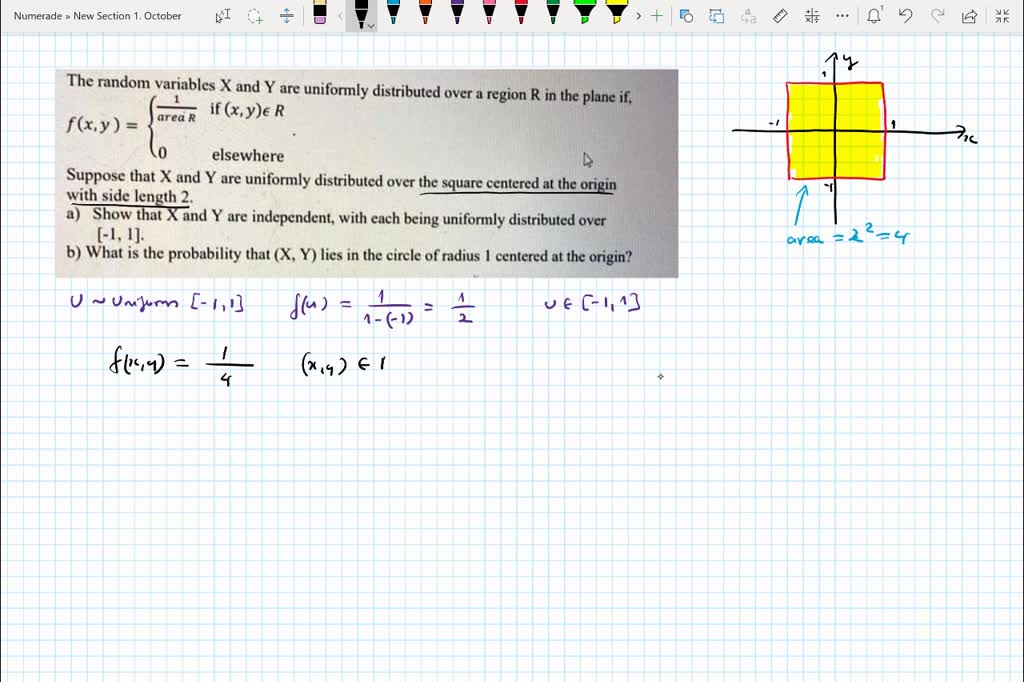 Numerade » New Section 1. October
The random variables X and Y are uniformly distributed over a region R in the plane if,
f(x,y) = { 1/area R if (x,y)ϵ R
0 elsewhere
Suppose that X and Y are uniformly distributed over the square centered at the origin
with side length 2.
a) Show that X and Y are independent, with each being uniformly distributed over
[-1, 1].
b) What is the probability that (X, Y) lies in the circle of radius 1 centered at the origin?
y
1
-1
1
x
-1
area = 2² = 4
U ~ Uniform [-1,1] f(u) = 1/(1-(-1)) = 1/2 u ∈ [-1,1]
f(x,y) = 1/4 (x,y) ∈ 1